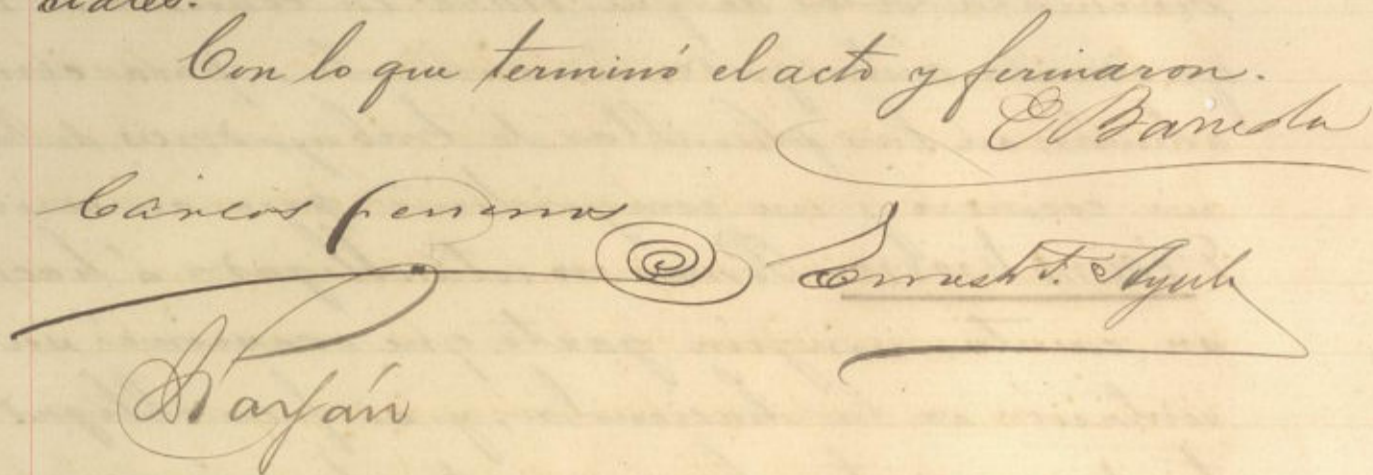 Con lo que terminó el acto y firmaron.
E Barreda
Carlos
Ernesto F. Ayulo